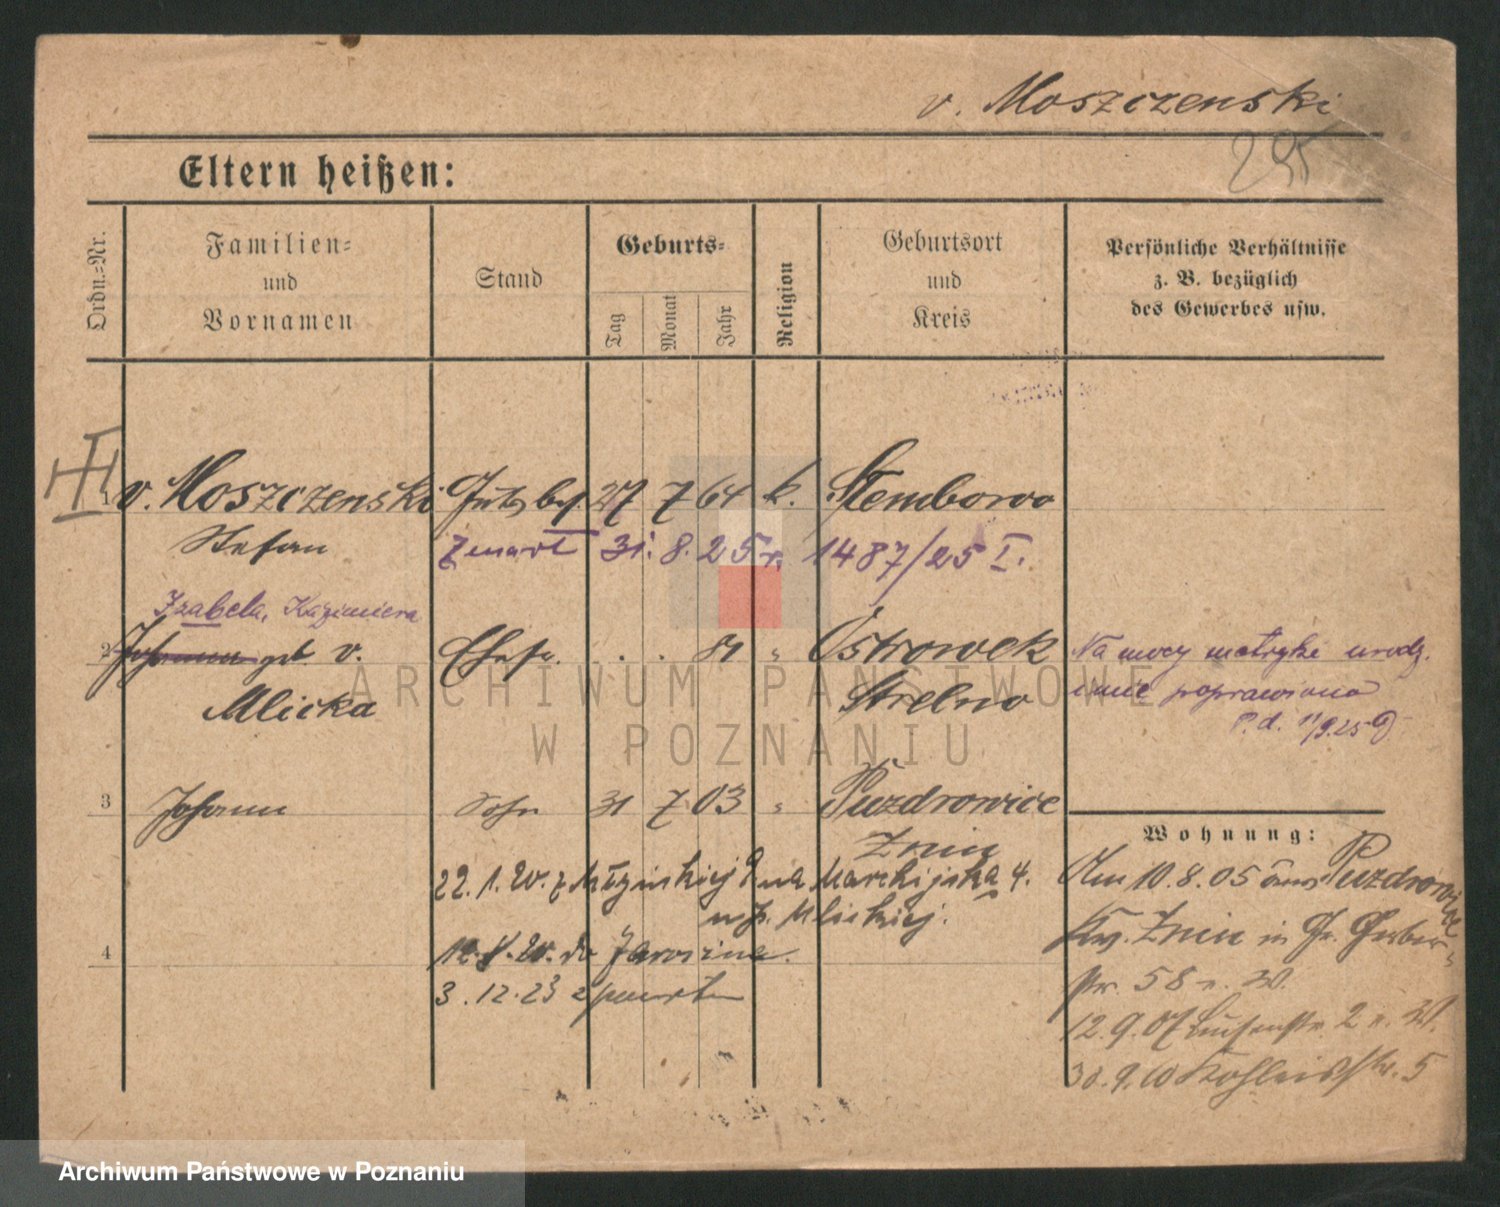 v. Moszczenski
295
Eltern heißen:
Ordn.=Nr.
Familien=
und
Vornamen
Stand
Geburts=
Tag
Monat
Jahr
Religion
Geburtsort
und
Kreis
Persönliche Verhältnisse
z. B. bezüglich
des Gewerbes usw.
1 v. Moszczenski Gutsbes. 27 7 64 k. Stemborowo
Stefan Zmarł 31. 8. 25 r. 1487/25 I.
Izabela, Kazimiera
2 Johanna geb. v. Ehefr. . . 81 " Ostrowek
Mlicka Strelno
Na mocy metryki urodz.
imię poprawiono
P.d. 11/9.25
3 Johann Sohn 31 7 03 " Puzdrowice
Znin
Wohnung:
22. 1. 20. z Młyńskiej 9 na Marchijska 4.
Mlickiej.
4 do Jarocina.
3. 12. 23
Am 10. 8. 05 aus Puzdrowice
Kr. Znin in Gr. Gerber-
str. 58 v. W.
12. 9. 07 Luisenstr. 2 v. W.
30. 9. 10 Kohleisstr. 5
ARCHIWUM PAŃSTWOWE
W POZNANIU
Archiwum Państwowe w Poznaniu